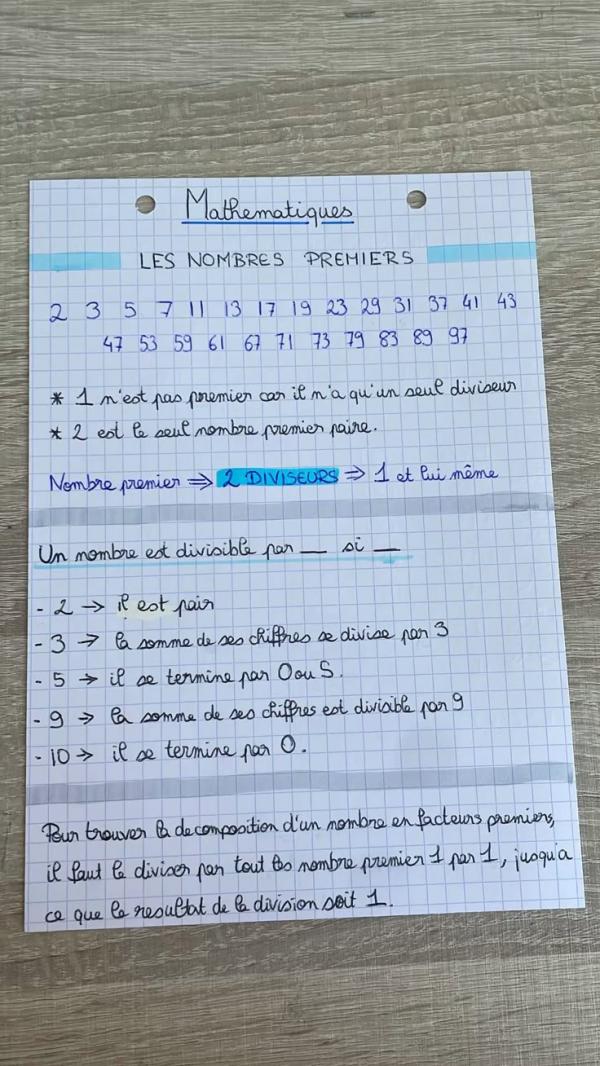 Mathematiques
LES NOMBRES PREMIERS
2 3 5 7 11 13 17 19 23 29 31 37 41 43
47 53 59 61 67 71 73 79 83 89 97
* 1 n'est pas premier car il n'a qu'un seul diviseur
* 2 est le seul nombre premier paire.
Nombre premier ⇒ 2 DIVISEURS ⇒ 1 et lui même
Un nombre est divisible par __ si __
- 2 → il est pair
- 3 → la somme de ses chiffres se divise par 3
- 5 → il se termine par 0 ou 5.
- 9 → la somme de ses chiffres est divisible par 9
- 10 → il se termine par 0.
Pour trouver la decomposition d'un nombre en facteurs premiers,
il faut le diviser par tout les nombre premier 1 par 1, jusqu'a
ce que le resultat de la division soit 1.